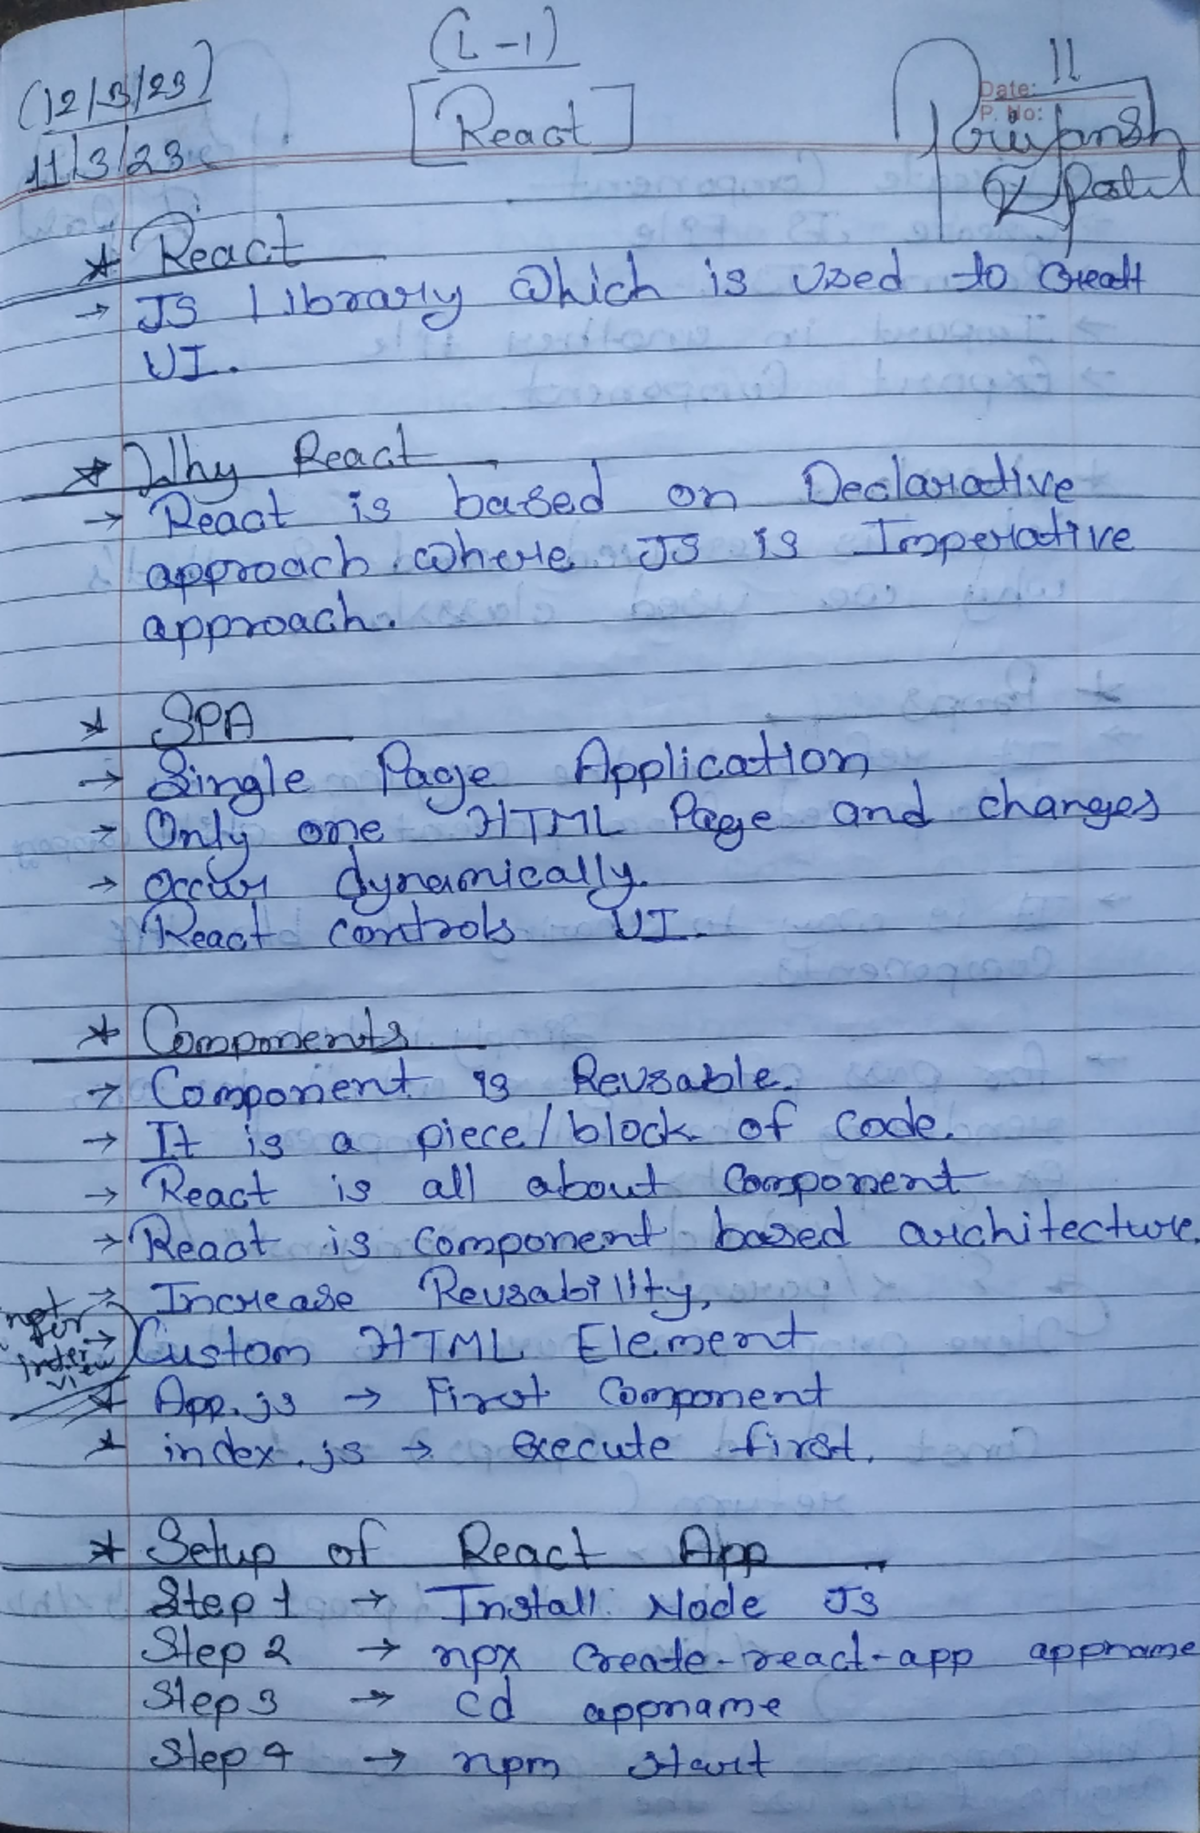 (L-1)
(12/3/23)
11/3/23
[React]
Date: 11
P. No:
Priyansh
Patil
* React
→ JS Library which is used to Create
UI.
* Why React
→ React is based on Declarative
approach where JS is Imperative
approach.
* SPA
→ Single Page Application
→ Only one HTML Page and changes
→ occur dynamically.
React controls UI.
* Components
→ Component is Reusable.
→ It is a piece/block of code.
→ React is all about component
→ React is component based architecture.
→ Increase Reusability,
not for interview
→ Custom HTML Element
* App.js → First Component
* index.js → execute first.
* Setup of React App
Step 1 → Install Node JS
Step 2 → npx create-react-app appname
Step 3 → cd appname
Step 4 → npm start